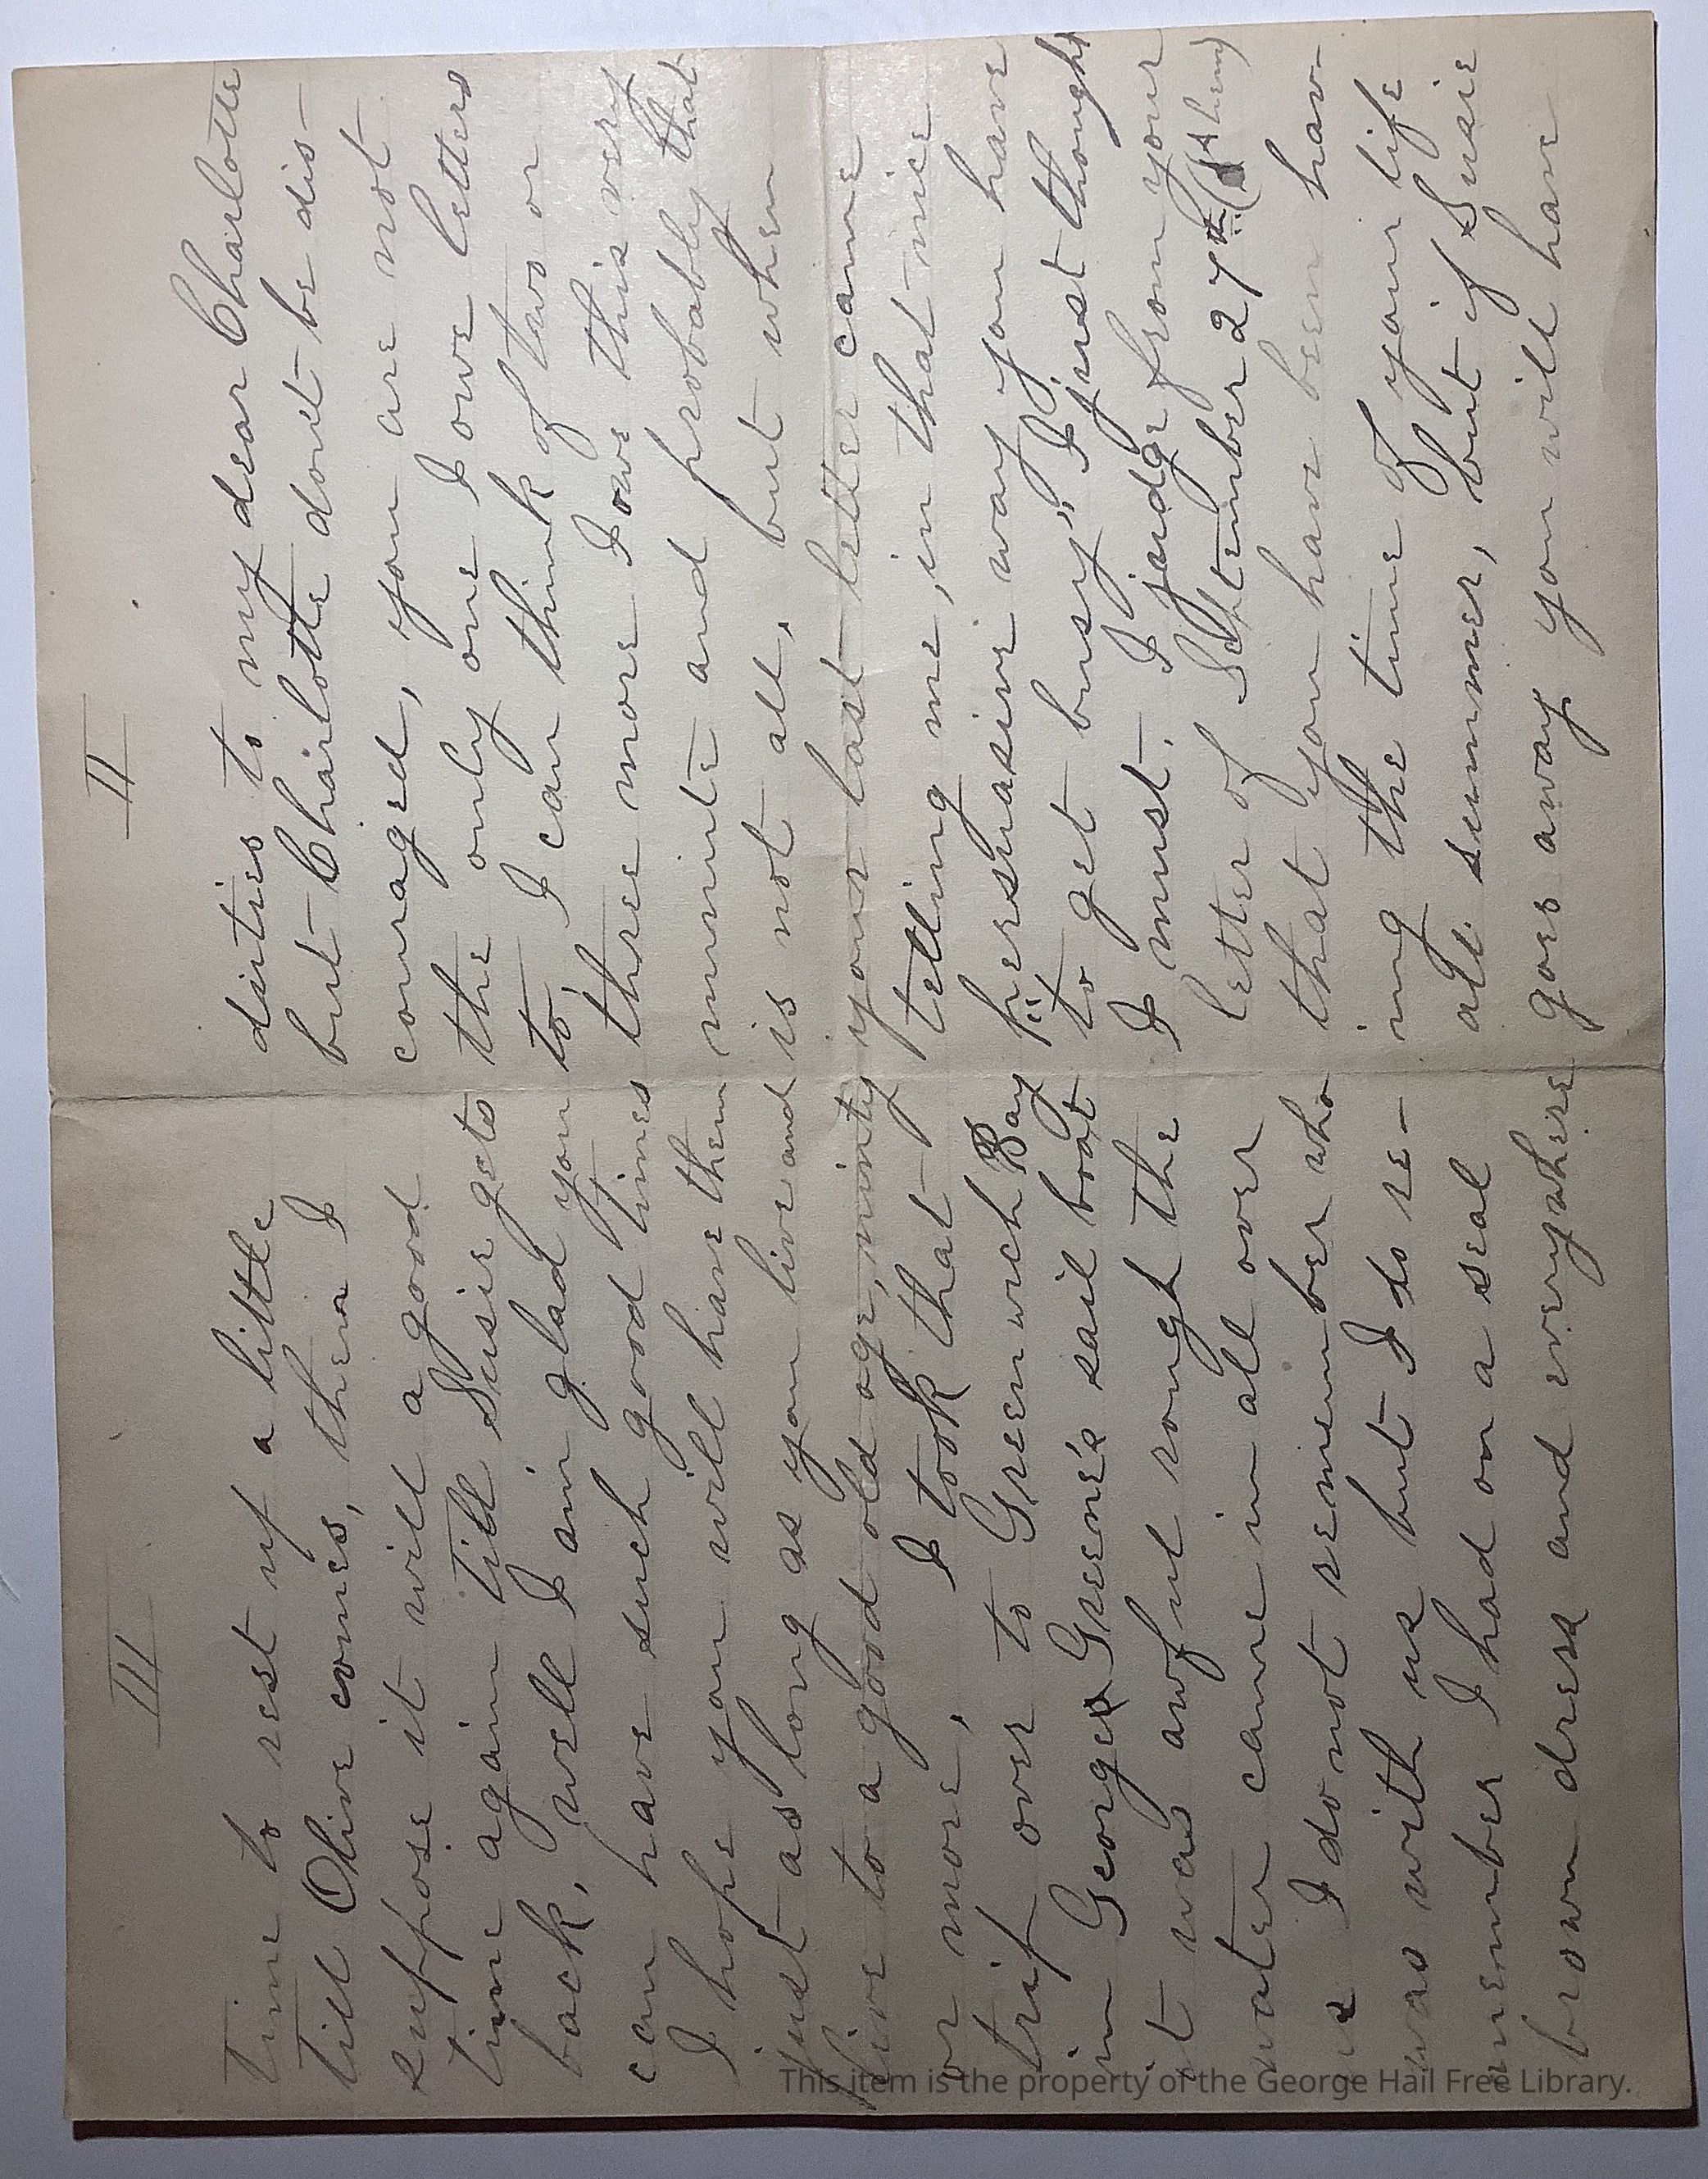 II
duties to my dear Charlotte
but Charlotte dont be dis-
couraged, you are not
the only one I owe letters
to, I can think of two or
three more I owe this very
minute and probably that
is not all, but when
your last letter came
telling me, in that nice
persuasive way you have
"to get busy" I just thought
I must. I judge from your
letter of September 27th. (Ahem)
that you have been hav-
ing the time of your life
all summer, but if Susie
goes away you will have
III
time to rest up a little
till Olive comes, then I
suppose it will a good
time again till Susie gets
back, well I am glad you
can have such good times
I hope you will have them
just as long as you live and
live to a good old age, ninty
or more, I took that
trip over to Greenwich Bay
in George Greene's sail boat
it was awful rough the
water came in all over
us I do not remember who
was with us but I do re-
member I had on a seal
brown dress and everywhere
This item is the property of the George Hail Free Library.